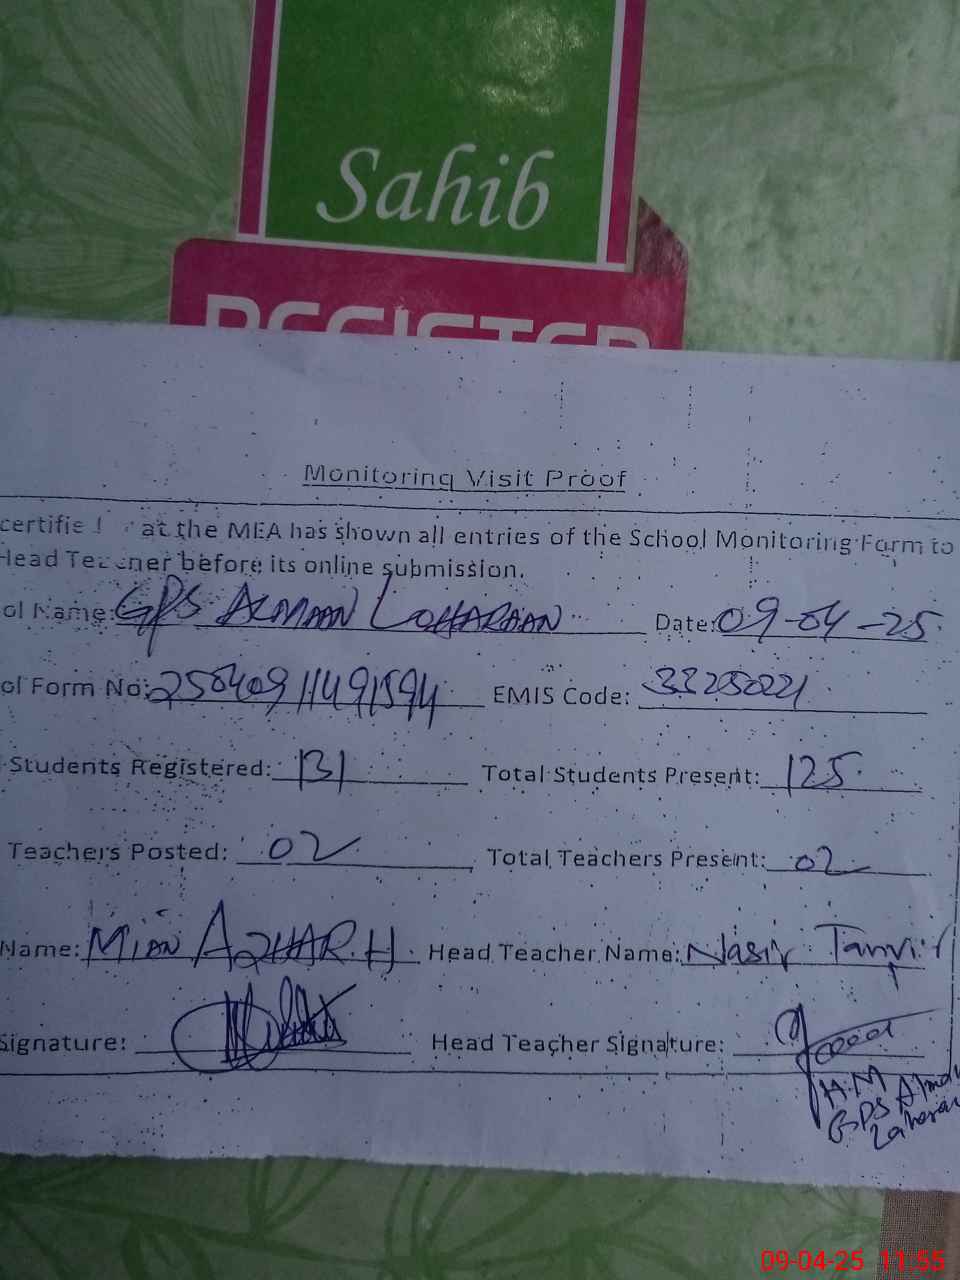 Sahib
REGISTER
Monitoring Visit Proof
certifie at the MEA has shown all entries of the School Monitoring Form to
Head Teacher before its online submission.
ol Name: GPS ALMAAN LOHARAAN Date: 09-04-25
ol Form No: EMIS Code: 33250221
Students Registered: 131 Total Students Present: 125
Teachers Posted: 02 Total Teachers Present: 02
Name: MIAN AZHAR.H Head Teacher Name: Nasir Tanvir
Signature: Head Teacher Signature:
H.M
GPS
09-04-25 11:55